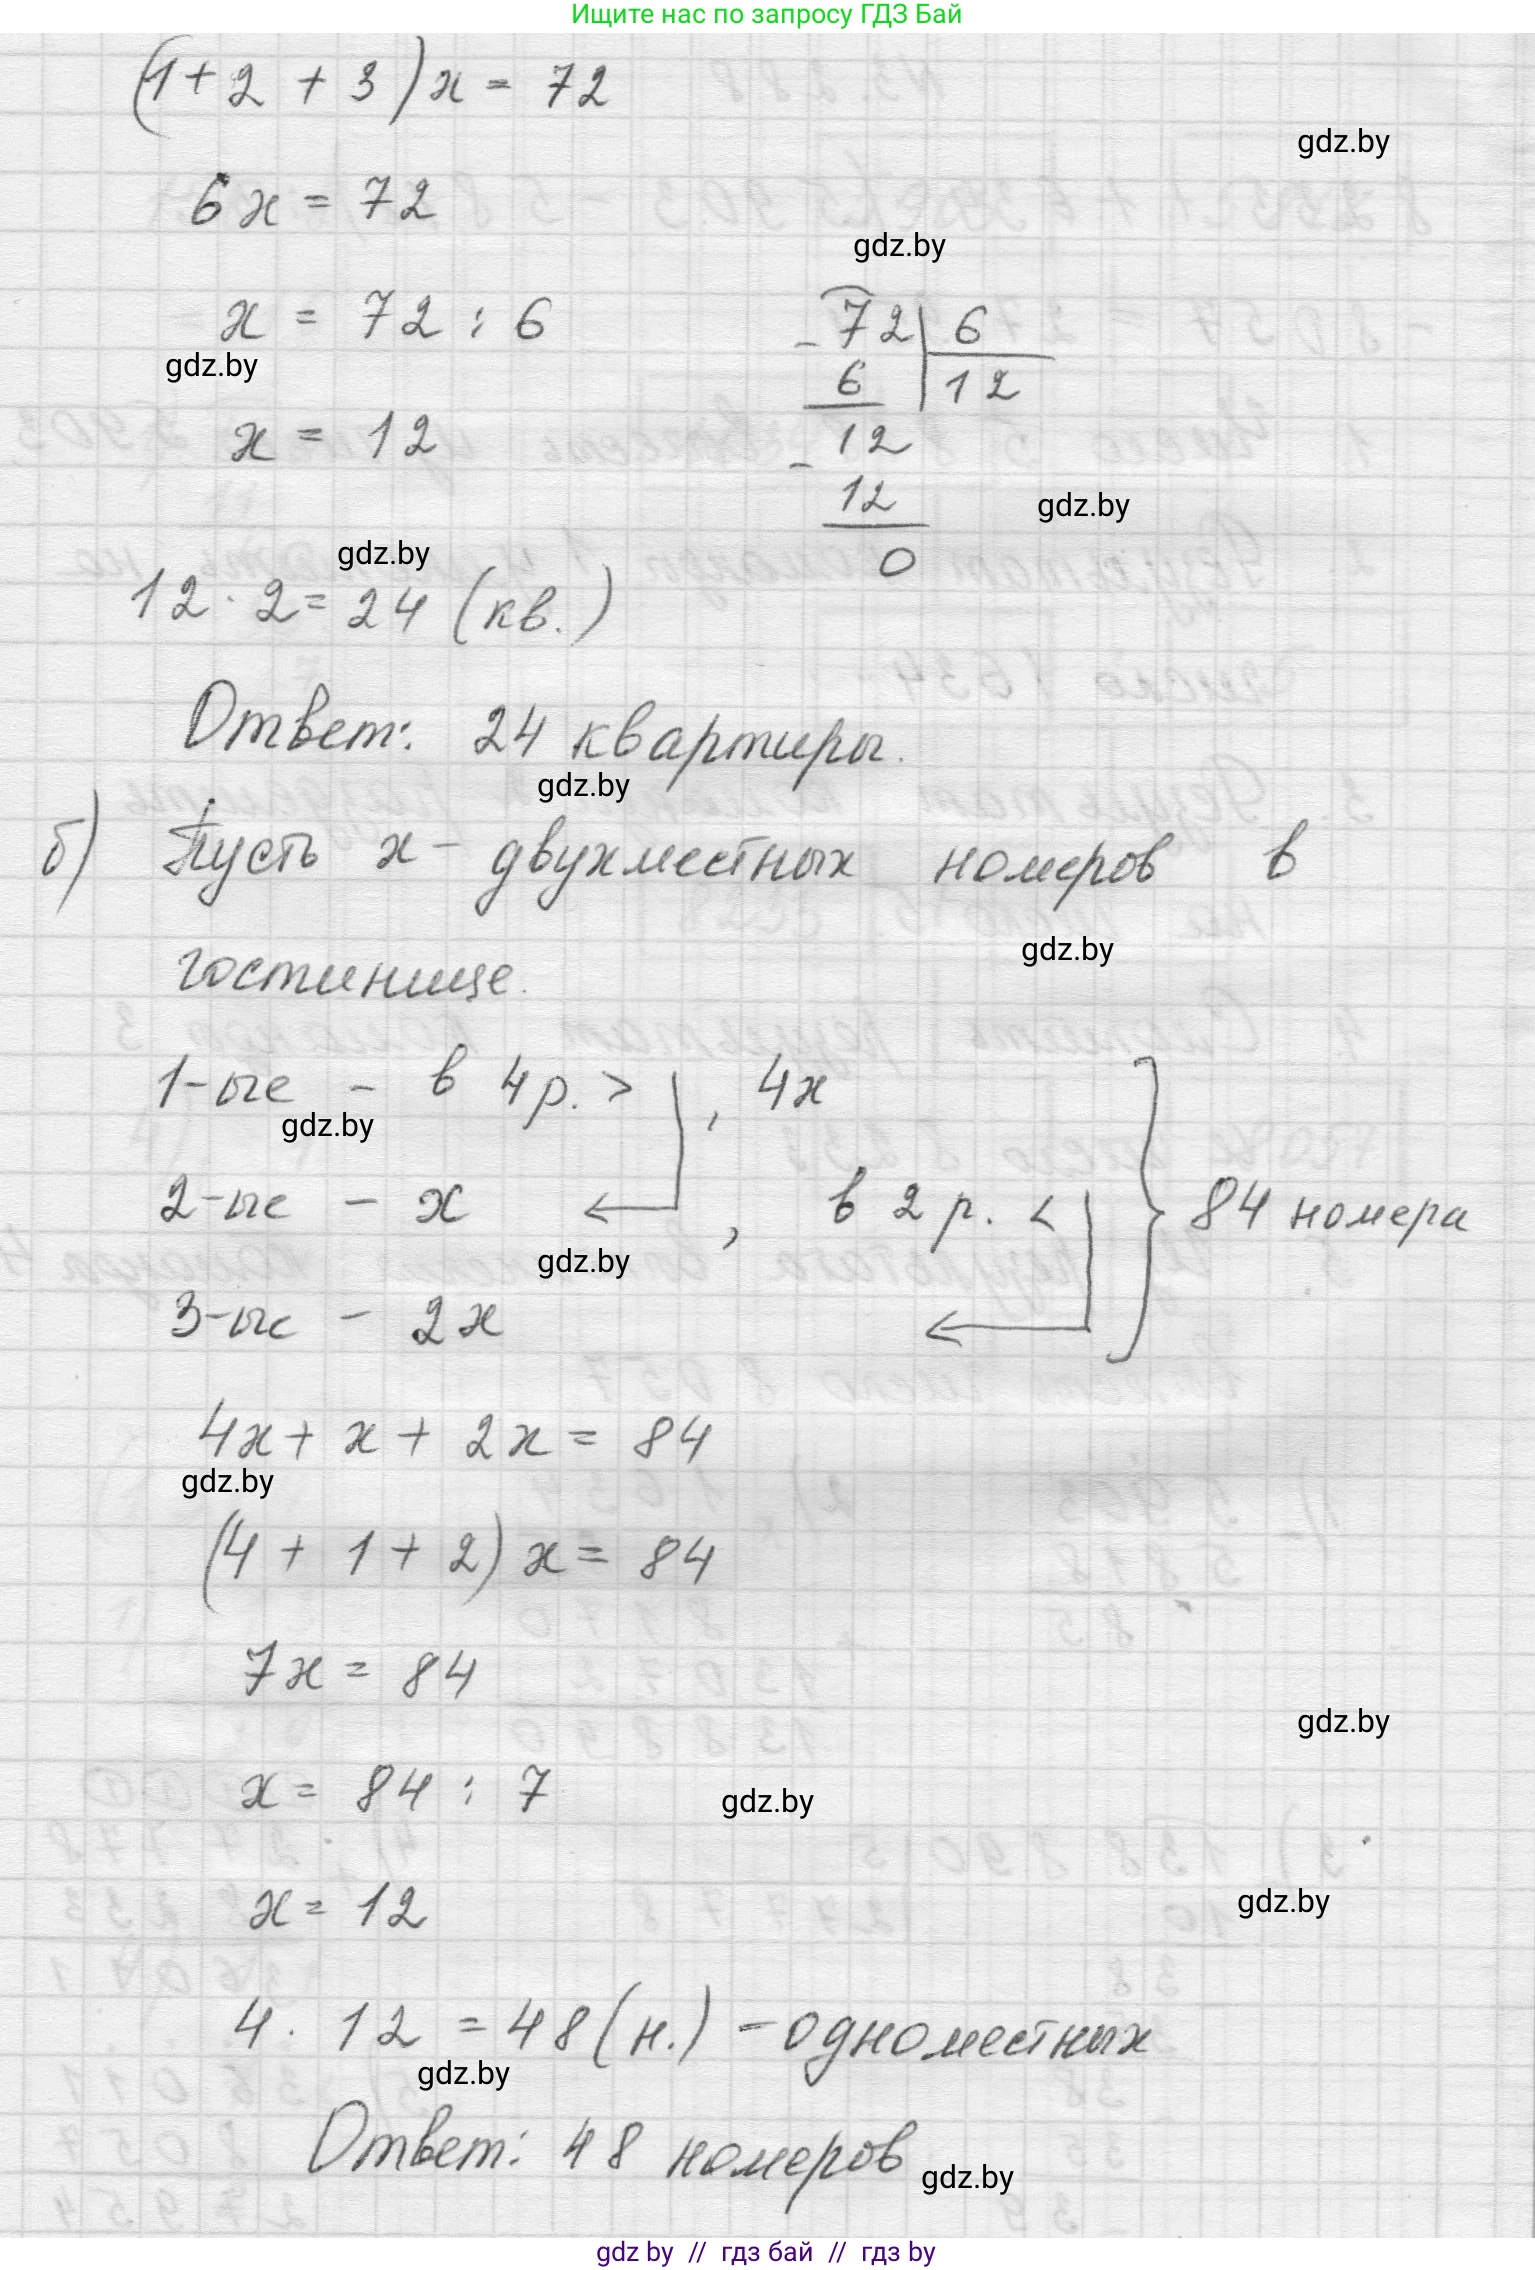 Ищите нас по запросу ГДЗ Бай
(1 + 2 + 3)x = 72
gdz.by
6x = 72
gdz.by
x = 72 : 6
gdz.by
x = 12
72 | 6
6 | 12
12
12
0
gdz.by
gdz.by
12 · 2 = 24 (кв.)
Ответ: 24 квартиры.
gdz.by
б) Пусть x – двухместных номеров в
gdz.by
гостинице.
1-ые – в 4 р. > , 4x
gdz.by
2-ые – x , в 2 р. < } 84 номера
gdz.by
3-ые – 2x
4x + x + 2x = 84
gdz.by
(4 + 1 + 2)x = 84
7x = 84
gdz.by
x = 84 : 7
gdz.by
x = 12
gdz.by
4 · 12 = 48 (н.) – одноместных
gdz.by
Ответ: 48 номеров
gdz.by
gdz by // гдз бай // гдз by